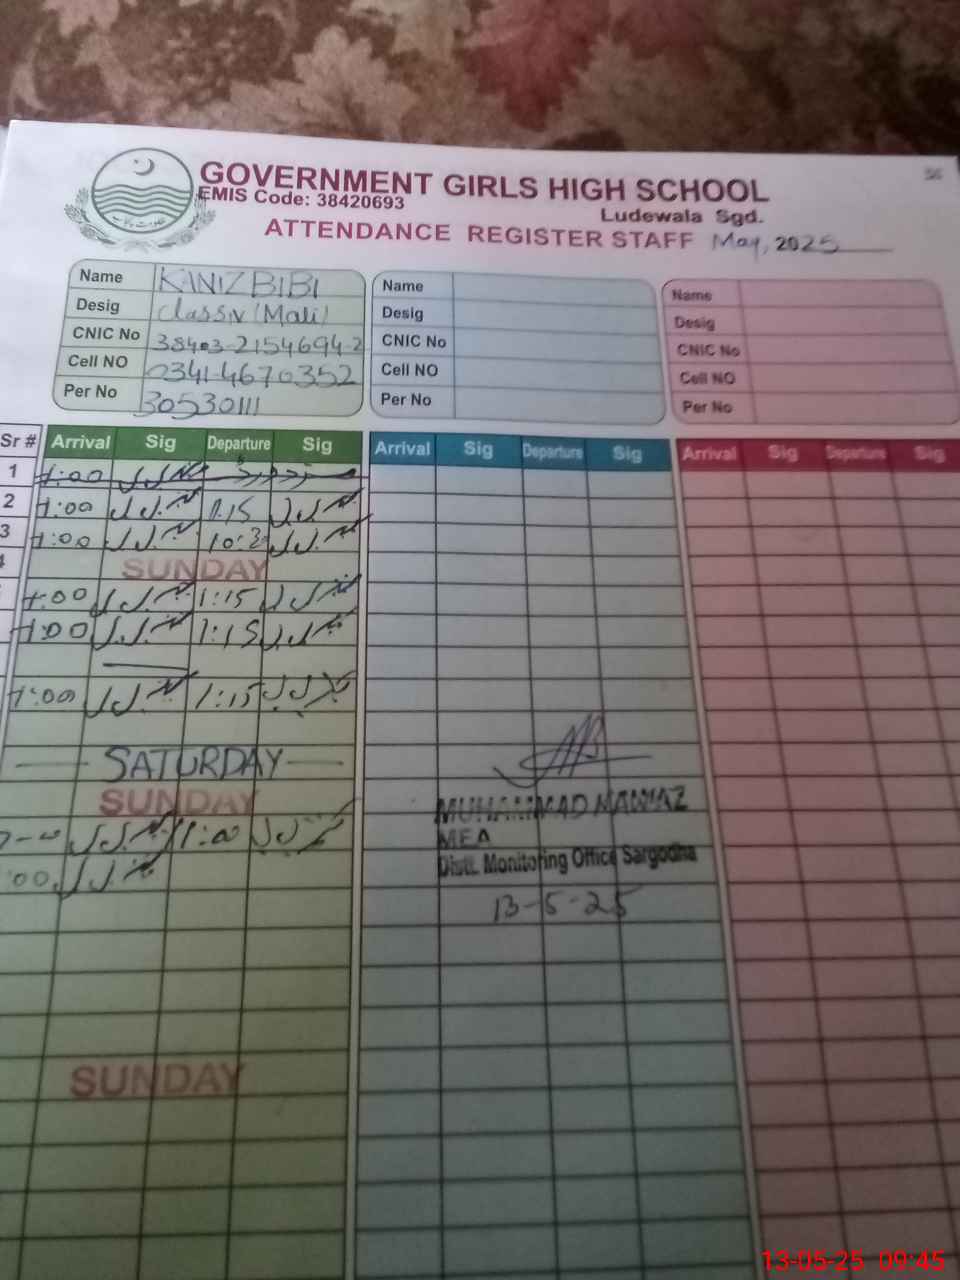 56
GOVERNMENT GIRLS HIGH SCHOOL
EMIS Code: 38420693
Ludewala Sgd.
ATTENDANCE REGISTER STAFF May, 2025
Name KANIZ BIBI
Desig Class IV (Mali)
CNIC No 38403-2154694-2
Cell NO 0341-4670352
Per No 30530111
Name
Desig
CNIC No
Cell NO
Per No
Name
Desig
CNIC No
Cell NO
Per No
Sr # Arrival Sig Departure Sig Arrival Sig Departure Sig Arrival Sig Departure Sig
1 7:00
2 7:00 1:15
3 7:00
SUNDAY
7:00 1:15
7:00 1:15
7:00 1:15
SATURDAY
SUNDAY
1:00
:00
MUHAMMAD NAWAZ
MEA
Distt. Monitoring Office Sargodha
13-5-25
SUNDAY
13-05-25 09:45